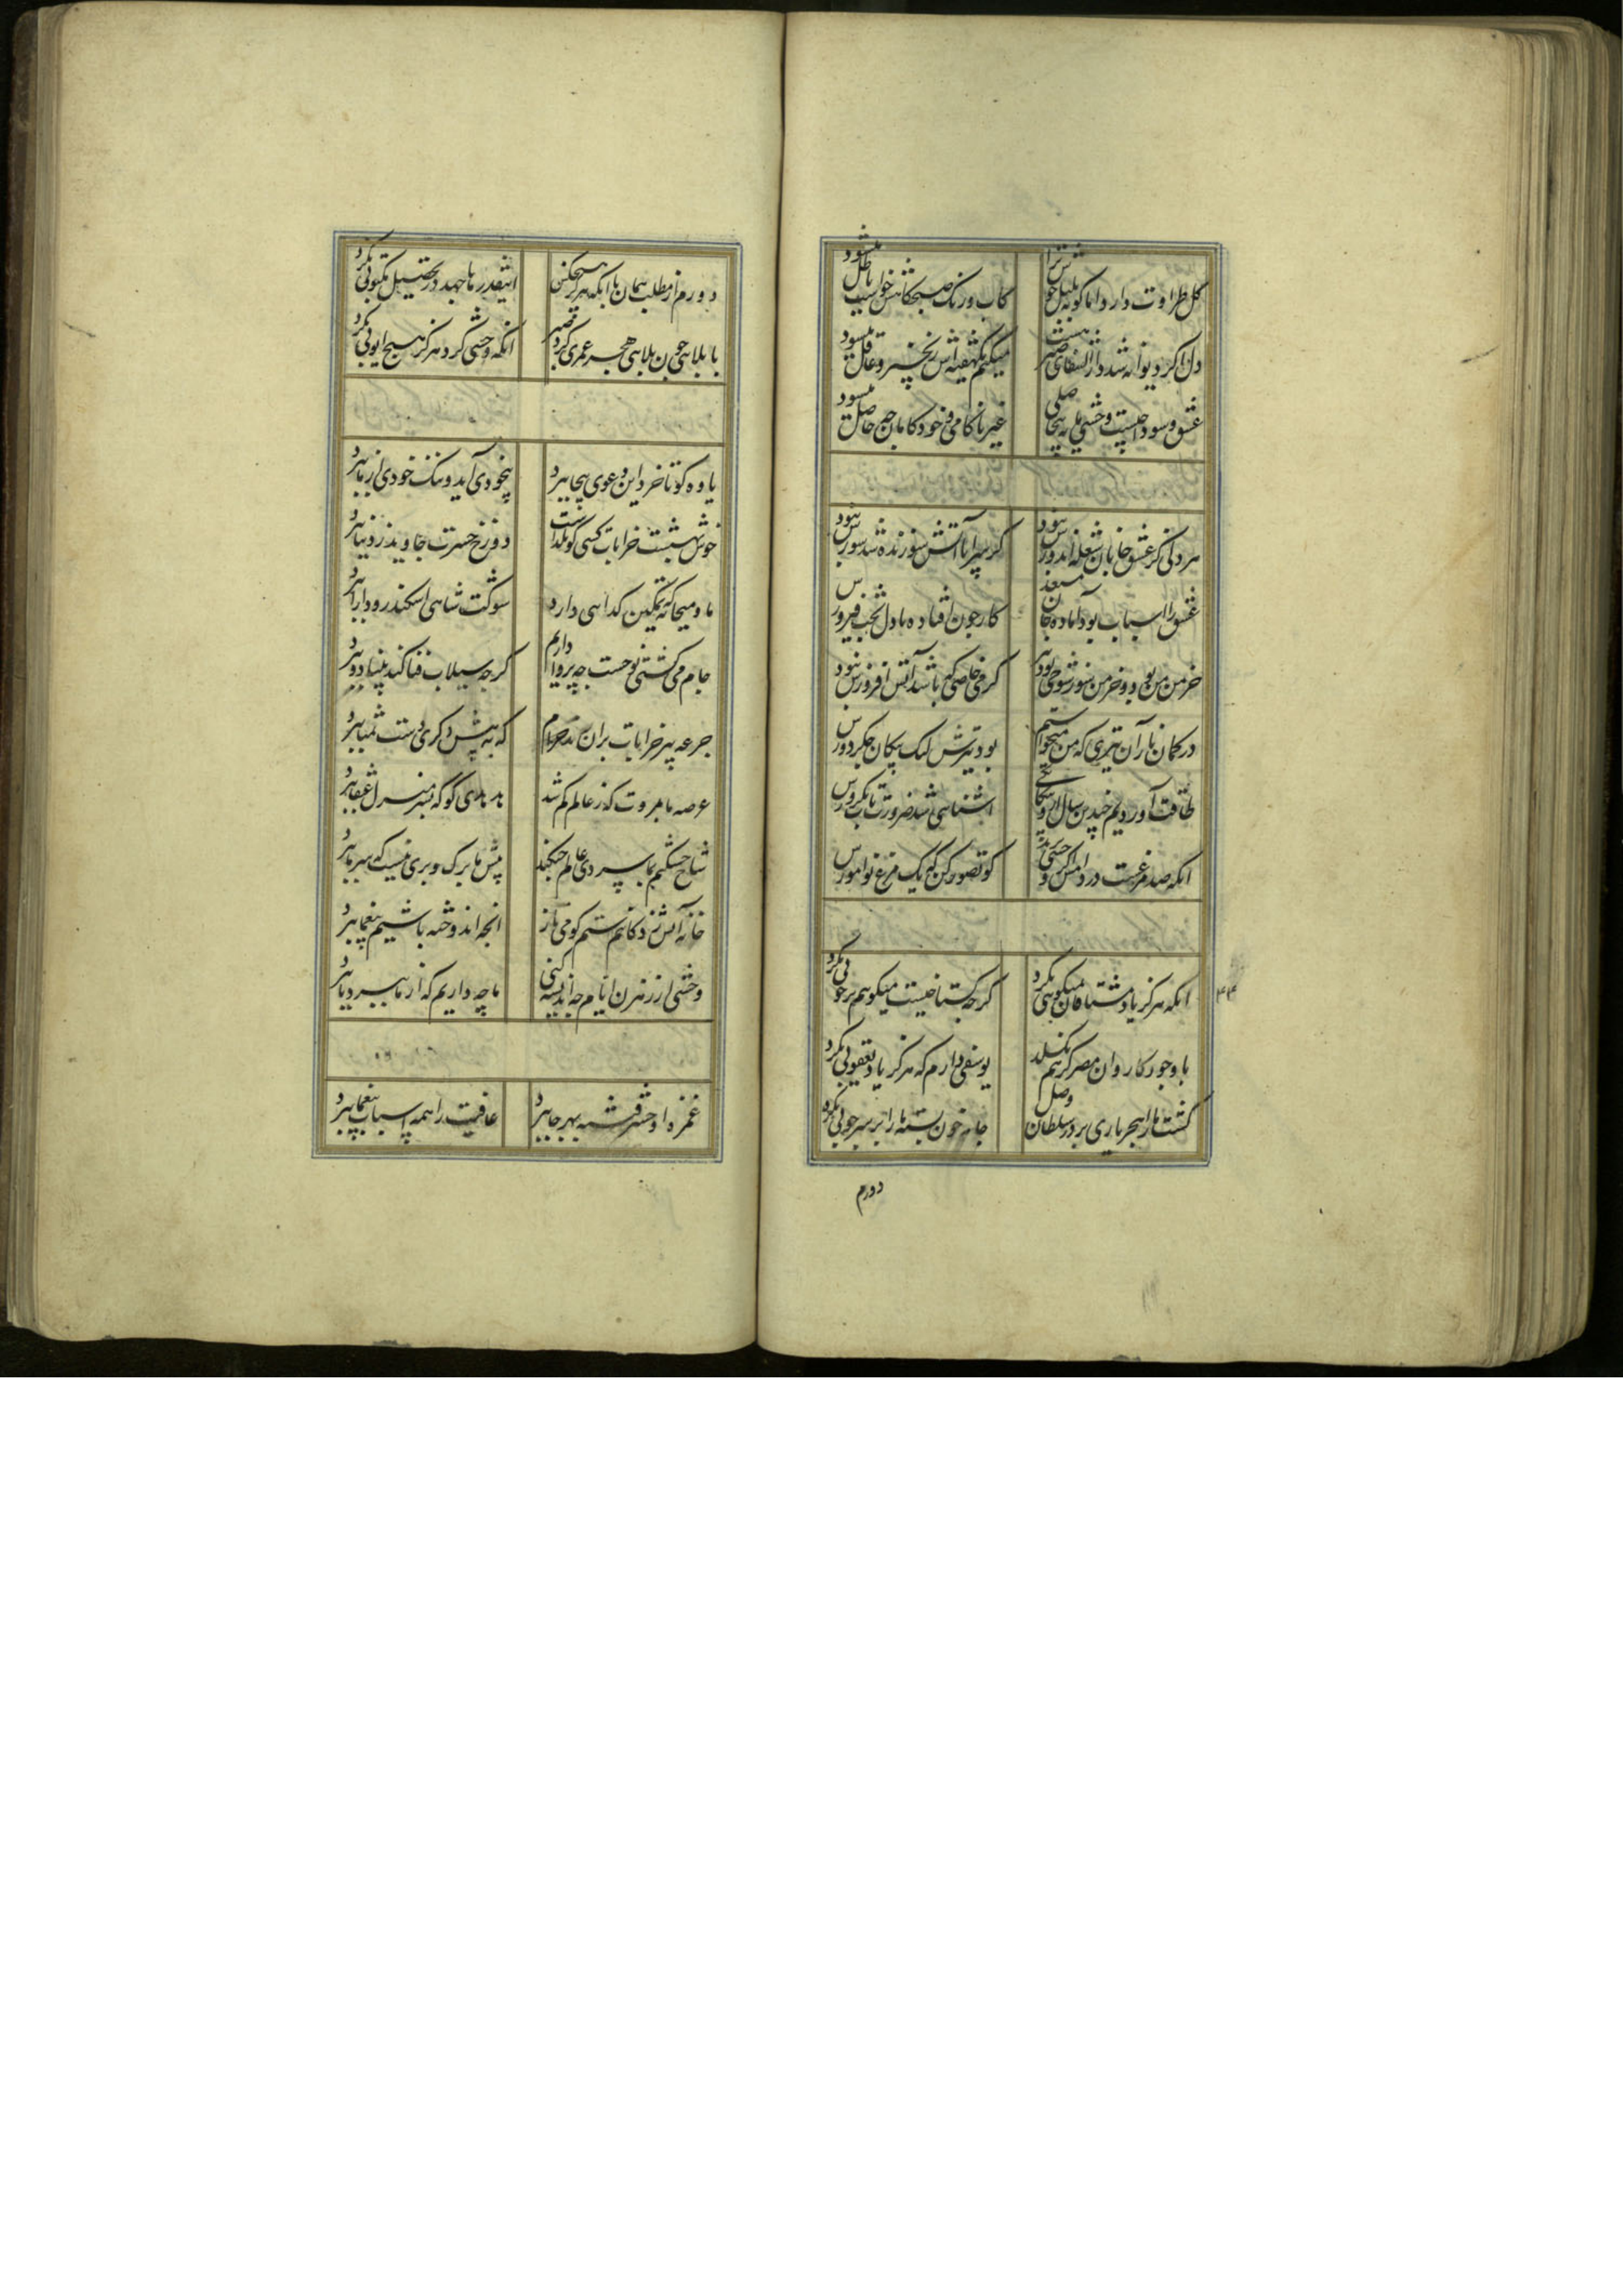 کل طراوت دارد اما کو به بلبل خوش ترا
کاب و رنک صبحکاهش خواب باطل میشود
دل اکر دیوانه شد دارالشفای صبر هست
میکنم یکهفته اش زنجیر و عاقل میشود
عشق و سود احیست وحشی مایه بی حاصلی
غیر ناکامی ز خودکامان چه حاصل میشود
هر دلی کز عشق جانان شعله اندوزش نبود
کر سراپا آتش سوزنده شد سوزش نبود
عشق را اسباب بود آماده جان مستعد
کار چون افتاده با دل بخت فیروزش
خرمن من بود و خرمن سوز شوخی بود نیز
کرمی خاصی که باشد آتش افروزش نبود
در کمان ناز آن تیری که من میخواستم
بود تیزش لیک پیکان جکردوزش
طاقت آوردیم چندین سال از بیکانکی
اشنائی شد ضرورت تاب یکروزش
انکه صد مرغست در دامش اکر وحشی پرید
کو تصور کن که یک مرغ نواموزش
انکه هرکز یاد مشتاقان بمکتوبی نکرد
کرچه کستاخیست میکویم برخوبی نکرد
با وجود کاروان مصر کز هم نکسلد
یوسفی دارم که هرکز یاد یعقوبی نکرد
کشت ما را هجر یاری بر در سلطان وصل
جامه خون بسته ما را بر سر چوبی نکرد
دورم
دورم از مطلب همان با انکه هرکز هیچکس
اینقدرها جهد در تحصیل مکتوبی نکرد
با بلاهی چون بلاهی هجر عمری کرد صبر
انکه وحشی کرد هرکز هیچ ایوبی نکرد
یاوه کو تا خرد این دعوی بیجا ببرد
بیخودی آید و ننک خودی از ما ببرد
خوش بهشتست خرابات کسی کو بگذاشت
دوزخ حسرت جاوید ز دنیا ببرد
ما و میخانه که تمکین کدائی دارد
شوکت شاهی اسکندر و دارا ببرد
جام می کشتی نوحست چه پروا داریم
کرچه سیلاب فنا کنبد بنیاد ببرد
جرعه پیر خرابات بران رند حرام
که به پیش دکری دست تمنا ببرد
عرصه ما به مروت که ز عالم کم شد
باد بادی کو که بسرمنزل عنقا ببرد
شاخ خشکیم بما سردی عالم چکند
پیش ما برک و بری نیست که سرما ببرد
خانه آتش زدکانیم ستم کو می تاز
انچه اندوخته باشیم بیغما ببرد
وحشی از رهزن ایام چه اندیشه کنی
ما چه داریم که از ما ببرد یا نبرد
غمزه او حشر فتنه بهر جا ببرد
عافیت را همه اسباب بیغما ببرد